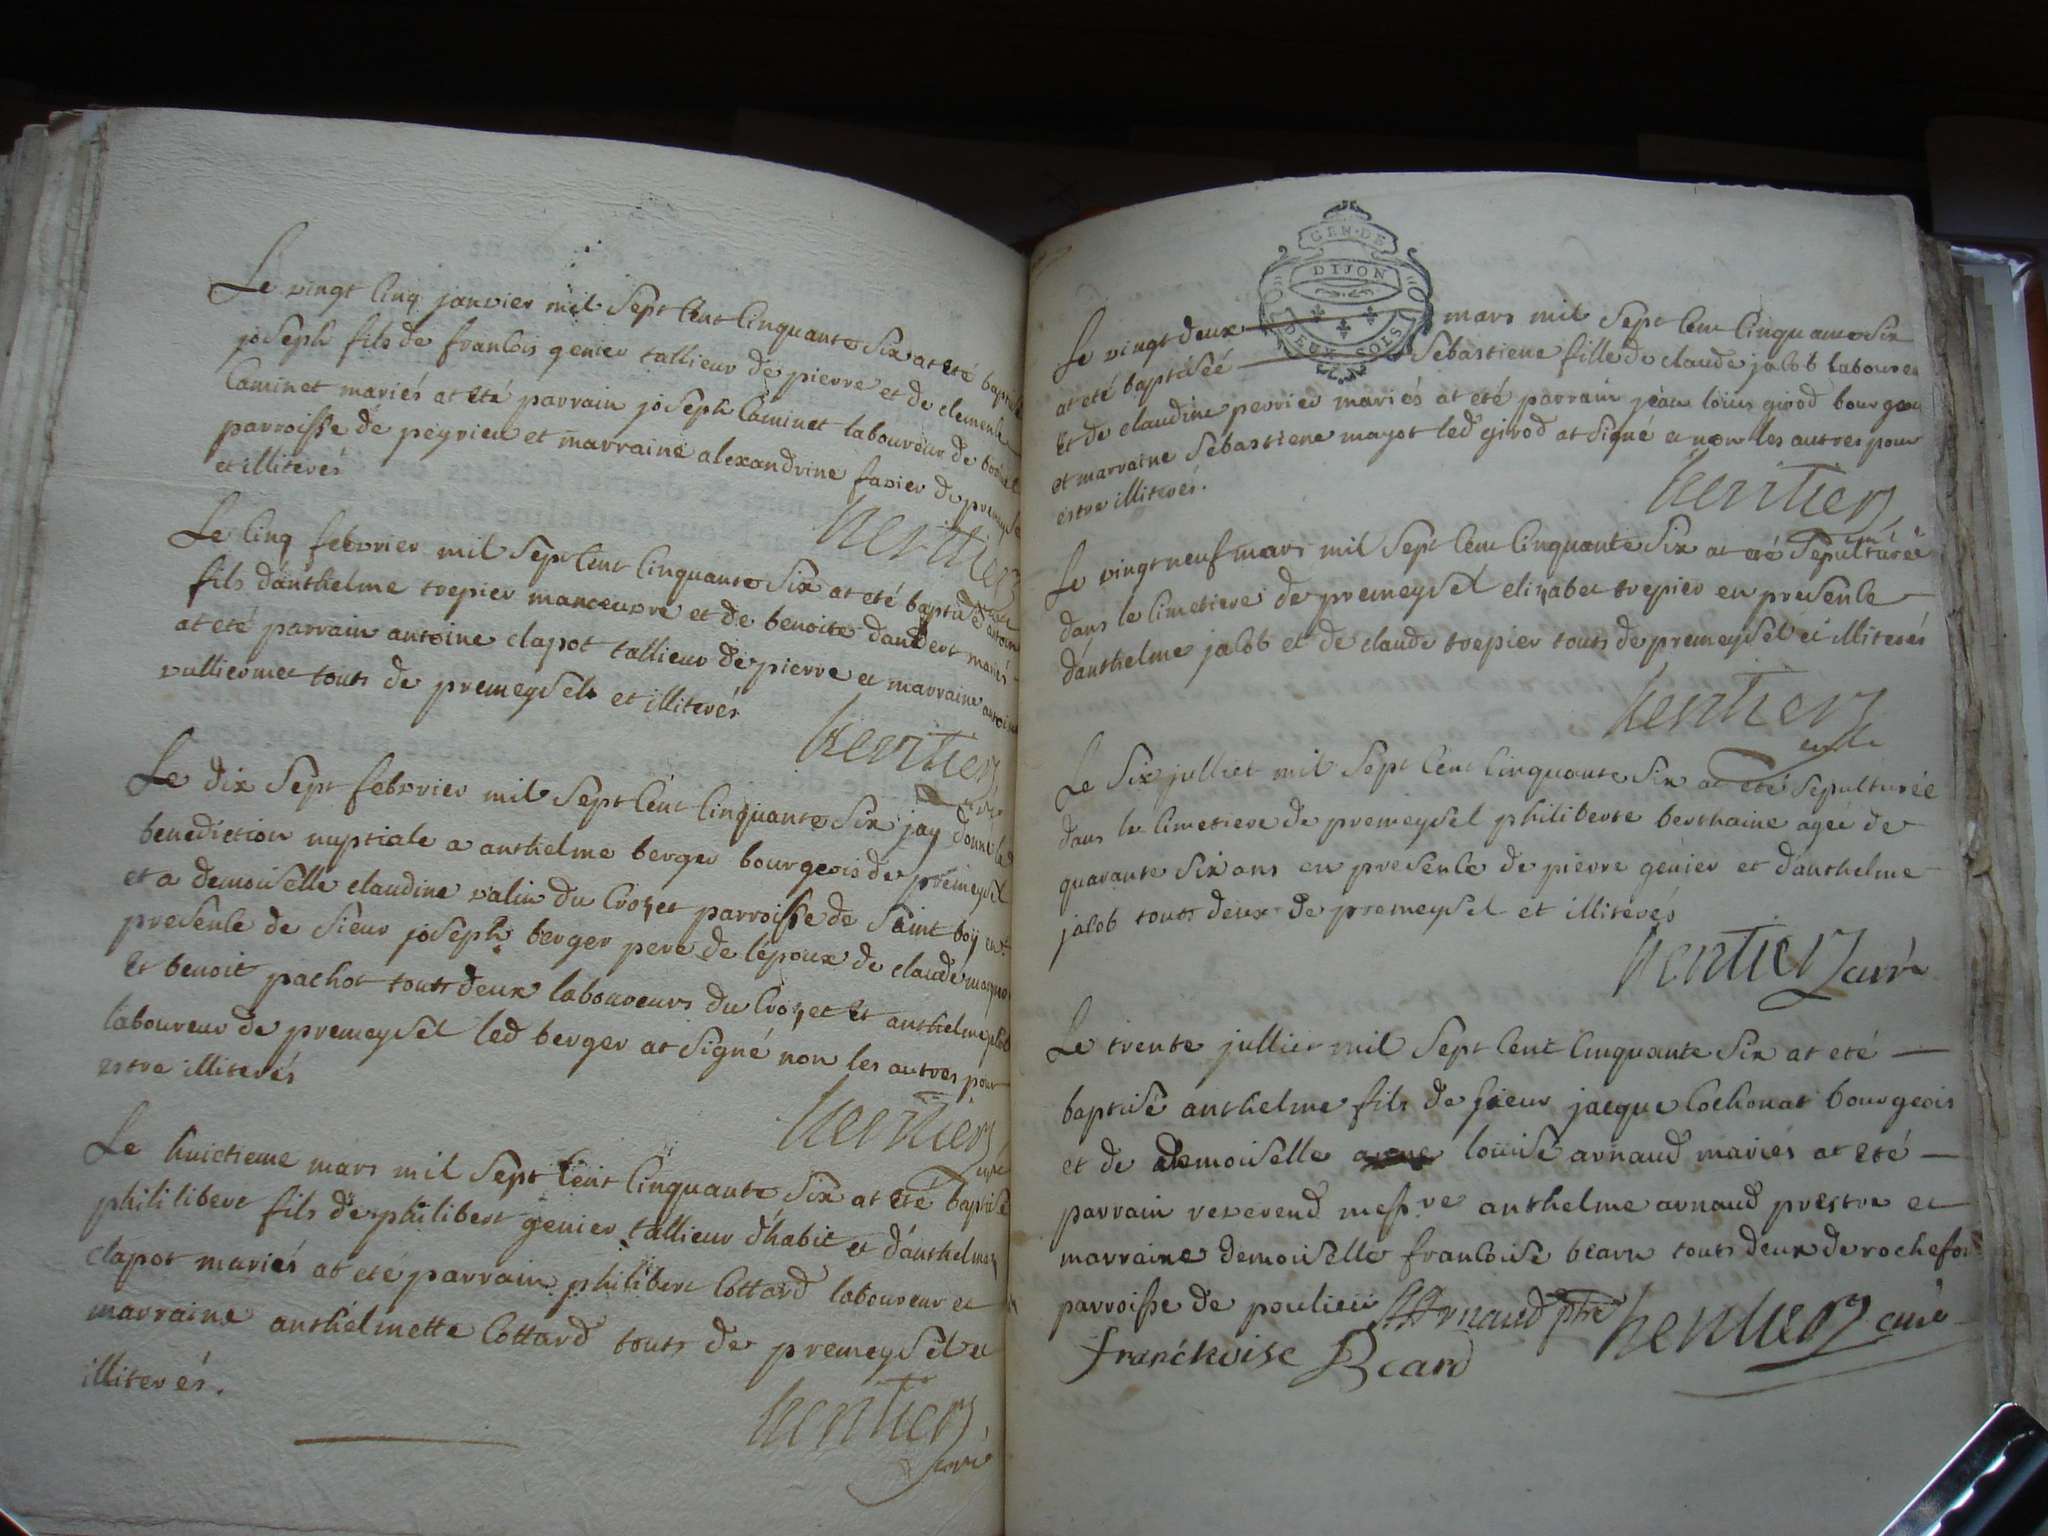 Le vingt cinq janvier mil sept cent cinquante six at eté baptisé
joseph fils de francois genier tallieur de pierre et de clemence
Caminet mariés at eté parrain joseph Caminet laboureur de
parroisse de peyrieu et marraine alexandrine favier de premeysel
et illiterés
hentier
Le cinq febvrier mil sept cent cinquante six at eté baptisé antoine
fils d'anthelme trepier manoeuvre et de benoite dandert mariés
at eté parrain antoine clapot tallieur de pierre et marraine antoine
vulliermet touts de premeysel et illiterés
hentier
curé
Le dix sept febvrier mil sept cent cinquante six jay donné la
benediction nuptiale a anthelme berger bourgeois de premeysel
et a demoiselle claudine valin du Crozet parroisse de Saint boy en
presence de sieur joseph berger pere de l'époux de claude
et benoit pachot touts deux laboureurs du Crozet et anthelme jacob
laboureur de premeysel led berger at signé non les autres pour
estre illiterés
hentier
curé
Le huictieme mars mil sept cent cinquante six at eté baptisé
philibert fils de philibert genier tallieur d'habit et d'anthelme
clapot mariés at eté parrain philibert Cottard laboureur et
marraine anthelmette Cottard touts de premeysel et
illiterés.
hentier
curé
GEN·DE
DIJON
DEUX SOLS
Le vingt deux mars mil sept cent cinquante six
at eté baptisée Sebastiene fille de claude jacob laboureur
et de claudine perrier mariés at eté parrain jean louis girod bourgeois
et marraine Sebastiene mayot led girod at signé et non les autres pour
estre illiterés.
hentier
Le vingt neuf mars mil sept cent cinquante six at eté sepulturée
dans le cimetiere de premeysel elizabet trepier en presence
d'anthelme jacob et de claude trepier touts de premeysel et illiterés
hentier
curé
Le six julliet mil sept cent cinquante six at eté sepulturée
dans le cimetiere de premeysel philiberte berthaine agée de
quarante six ans en presence de pierre genier et d'anthelme
jacob touts deux de premeysel et illiterés
hentier curé
Le trente julliet mil sept cent cinquante six at eté
baptisé anthelme fils de sieur jacque Cochonat bourgeois
et de demoiselle louise arnaud mariés at eté
parrain reverend messre anthelme arnaud prestre et
marraine demoiselle francoise bearn touts deux de rochefort
parroisse de poulieu AArnaud ptre hentier curé
franckoise Beard